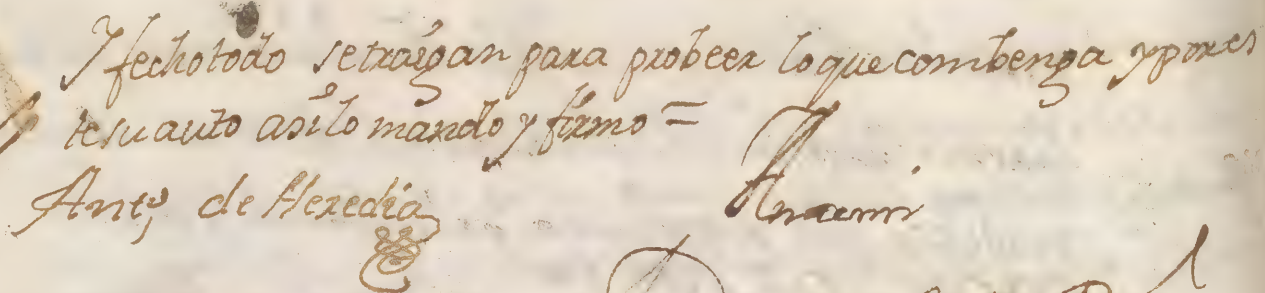 Y fecho todo se traigan para probeer lo que combenga y por es
te su auto asi lo mando y firmo =
Anto de Heredia
Ante mi